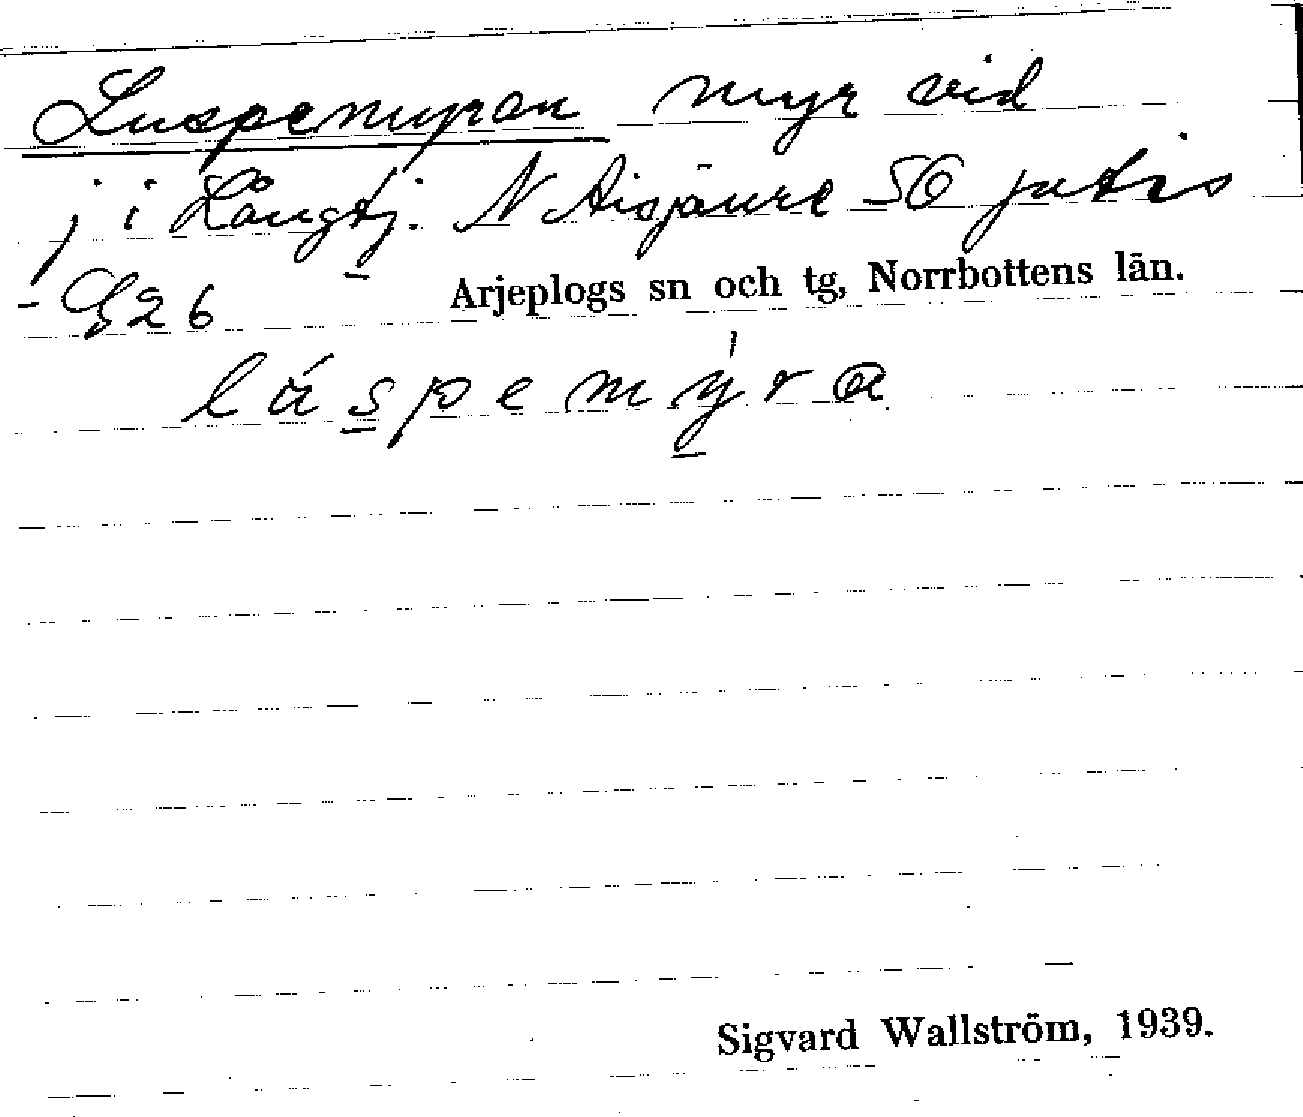 Luspemyran myr vid
j i Långtj. N Aisjaure SO jutis
- G26
Arjeplogs sn och tg, Norrbottens län.
lúspemýra
Sigvard Wallström, 1939.